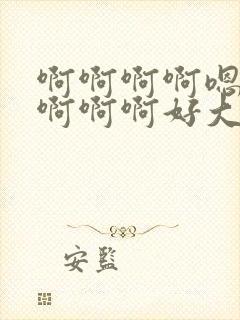 啊啊啊啊嗯
啊啊啊好大
安監